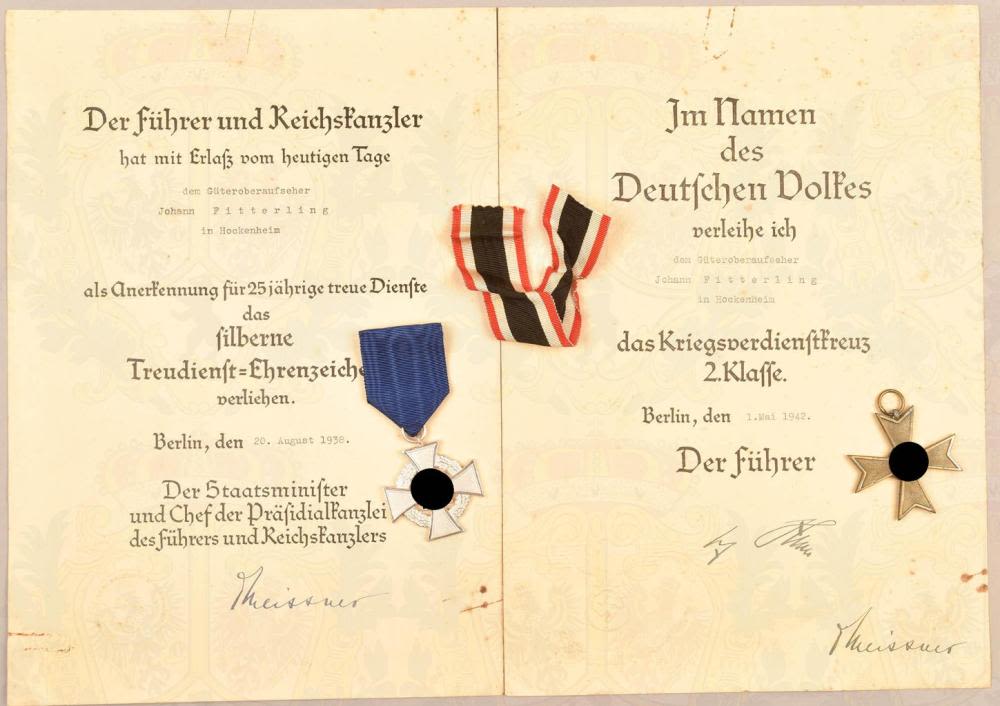 Der Führer und Reichskanzler
hat mit Erlaß vom heutigen Tage
dem Güteroberaufseher
Johann Fitterling
in Hockenheim
als Anerkennung für 25jährige treue Dienste
das
silberne
Treudienst=Ehrenzeiche
verliehen.
Berlin, den 20. August 1938.
Der Staatsminister
und Chef der Präsidialkanzlei
des Führers und Reichskanzlers
Meissner
Im Namen
des
Deutschen Volkes
verleihe ich
dem Güteroberaufseher
Johann Fitterling
in Hockenheim
das Kriegsverdienstkreuz
2. Klasse.
Berlin, den 1. Mai 1942.
Der Führer
Meissner